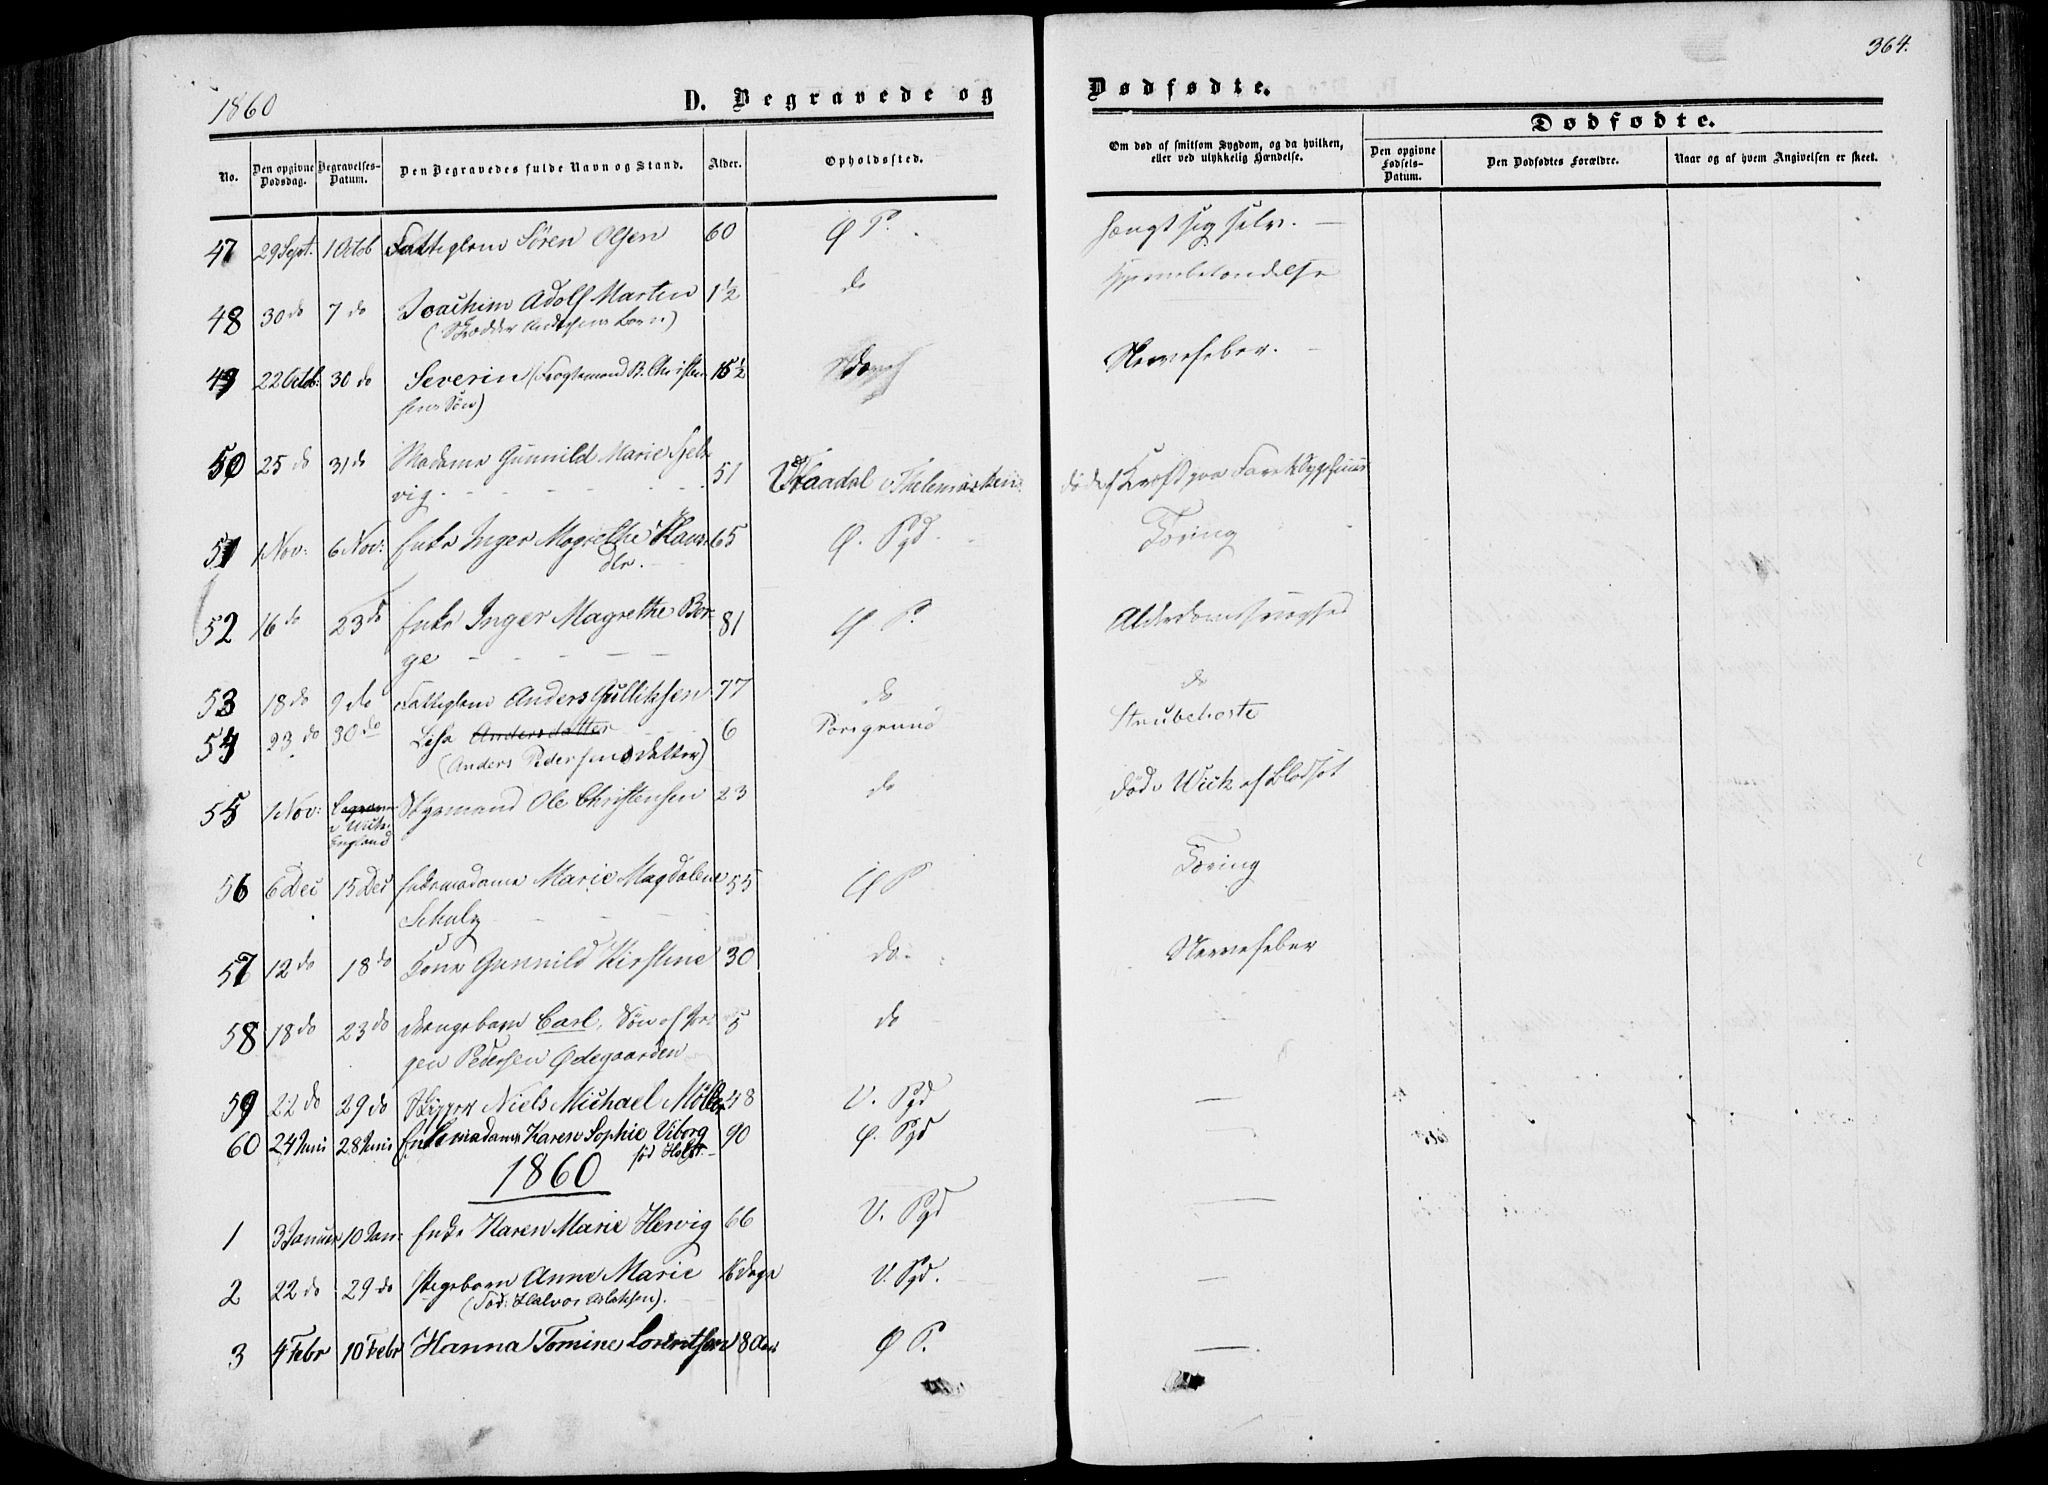 364.
1860
D. Begravede og Dødfødte.
Dødfødte.
No.
Den opgivne Dødsdag.
Begravelses-Datum.
Den Begravedes fulde Navn og Stand.
Alder.
Opholdssted.
Om død af smitsom Sygdom, og da hvilken,
eller ved ulykkelig Hændelse.
Den opgivne Fødsels-Datum.
Den Dødfødtes Forældre.
Naar og af hvem Angivelsen er skeet.
47 29 Sept. 1 Octob Fattiglem Sören Olsen 60 Ø P. hængt sig selv. —
48 30 do 7 do Joachim Adolf Martin 1½ do
49 22 Octob: 30 do Severin ( R. Christen 15½ Nervefeber. —
sens Søn)
50 25 do 31 do Madame Gunnild Marie 51 i Thelemarken
vig. - - - - -
51 1 Nov: 6 Nov: Enke Inger Magrethe 65 Ø. Pgd. Tæring
52 16 do 23 do Enke Inger Magrethe Bor- 81 Ø P. Alderdomssvaghed
ge - - - - -
53 18 do 9 do Fattiglem Anders Gulliksen 77 do do
54 23 do 30 do Lisa Andersdatter 6 Porsgrund Strubehoste
(Anders Pedersens datter)
55 1 Nov: Ole Christensen 23 do döde Wick af Blodsot
England
56 6 Dec 15 Dec Enkemadame Marie Magdalene 55 Ø P Tæring
Schulz - - - -
57 12 do 18 do Kone Gunnild Kirstine 30 do Nervefeber
58 18 do 23 do Drengebarn Carl, Søn af Jör- 5 do
gen Pedersen Ødegaarden
59 22 do 29 do Skipper Niels Michael Möller 48 V. Pgd —
60 24 Juni 28 Juni Enkemadame Karen Sophie Viborg 90 Ø. Pgd
fød Holst.
1860
1 3 Januar 10 Jan: Enke Karen Marie Hervig 66 V. Pgd —
2 22 do 29 do Pigebarn Anne Marie 16 Dage V. Pgd. —
(Fad: Halvor Aslaksen).
3 4 Febr 10 Febr Hanna Tomine Lorentsen 18 Aar Ø P. —